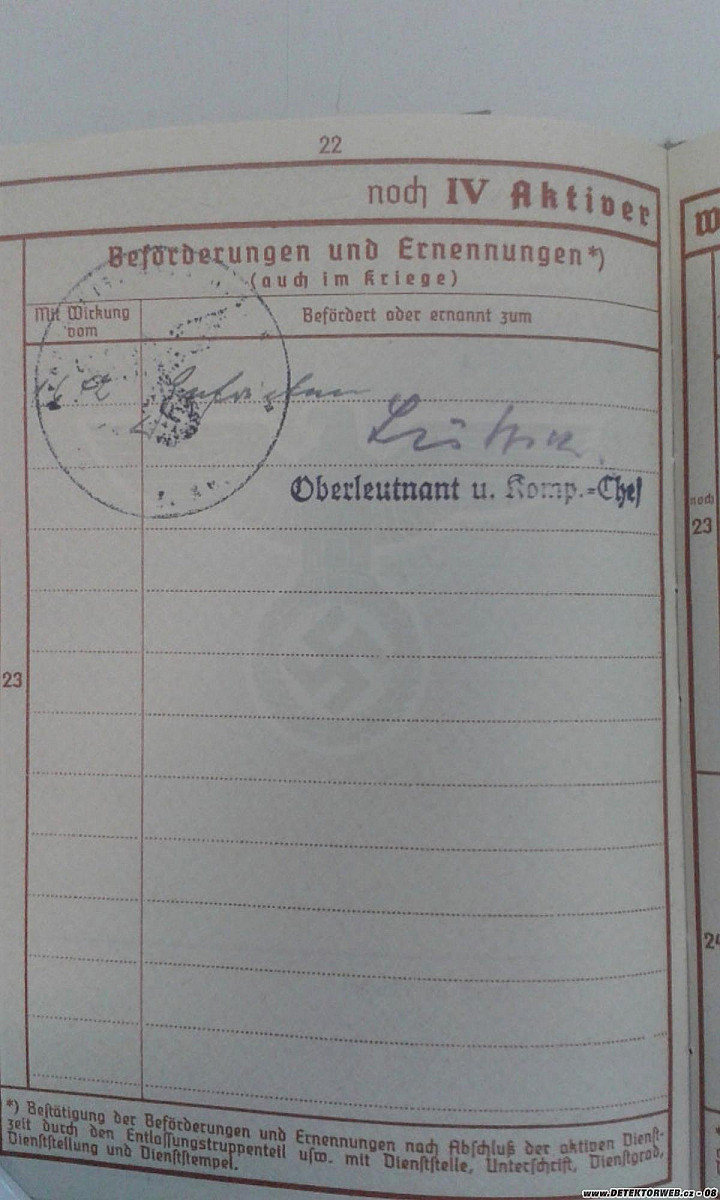 22
noch IV Aktiver
Beförderungen und Ernennungen*)
(auch im Kriege)
Mit Wirkung
vom
Befördert oder ernannt zum
Oberleutnant u. Komp.-Chef
noch
23
23
24
*) Bestätigung der Beförderungen und Ernennungen nach Abschluß der aktiven Dienst-
zeit durch den Entlassungstruppenteil usw. mit Dienststelle, Unterschrift, Dienstgrad,
Dienststellung und Dienststempel.
www.DETEKTORWEB.cz - 00